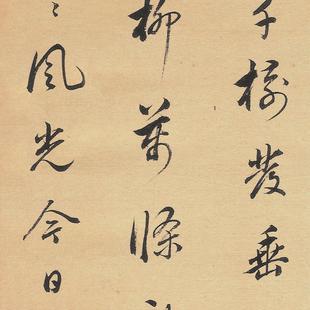 千樹發垂
柳萬條
風光今日